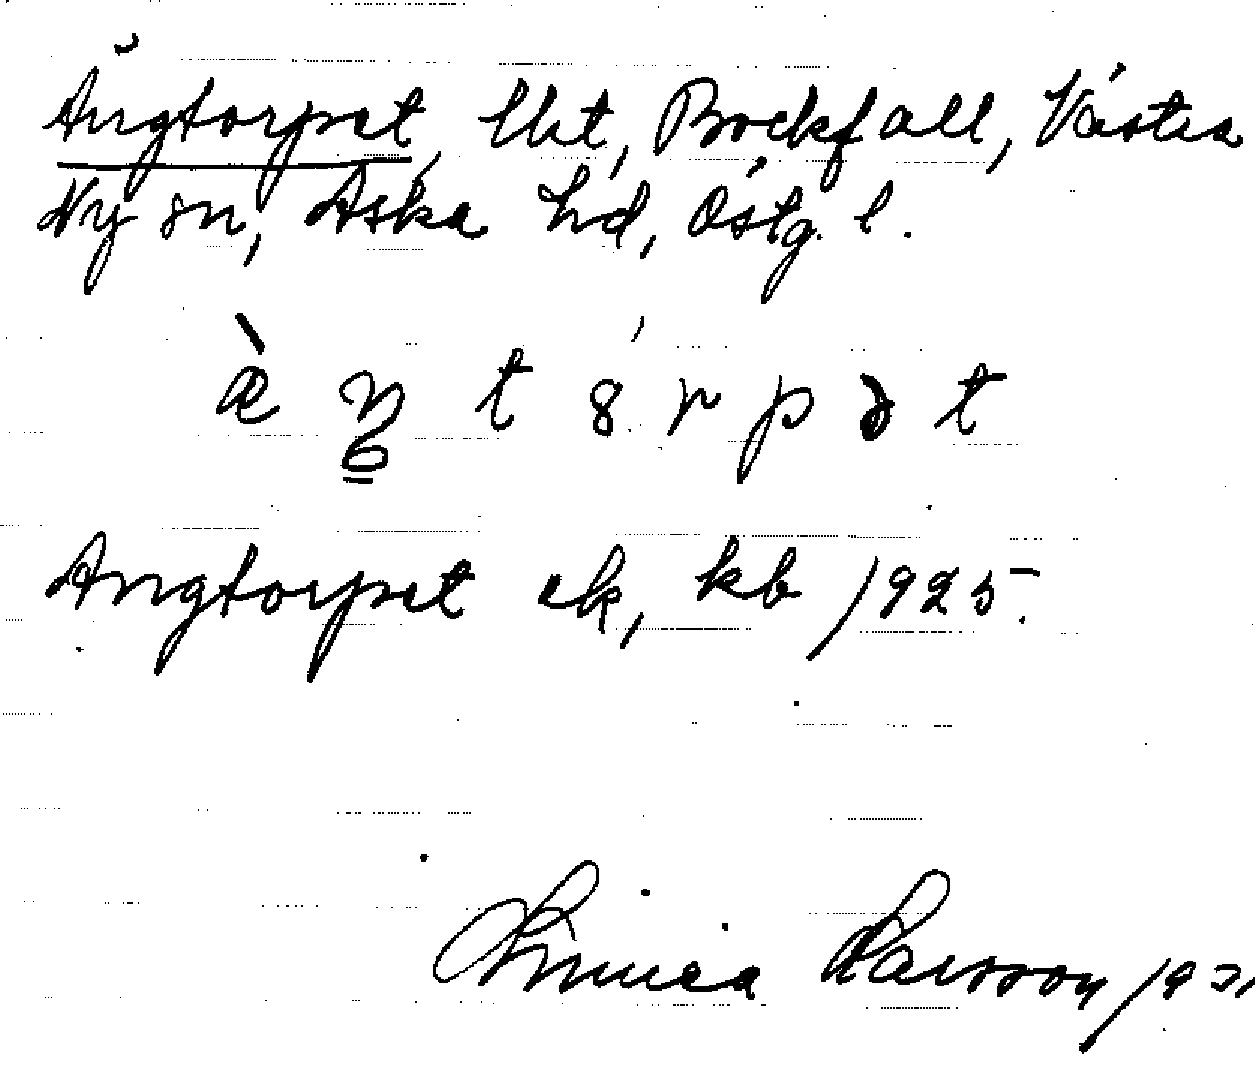 Ängtorpet, lht, Bockfall, Västra
Ny sn, Aska hd, Östg. l.
æ̀ ŋ t ó r p ə t
Ängtorpet ek, kb 1925.
Linnea Larsson